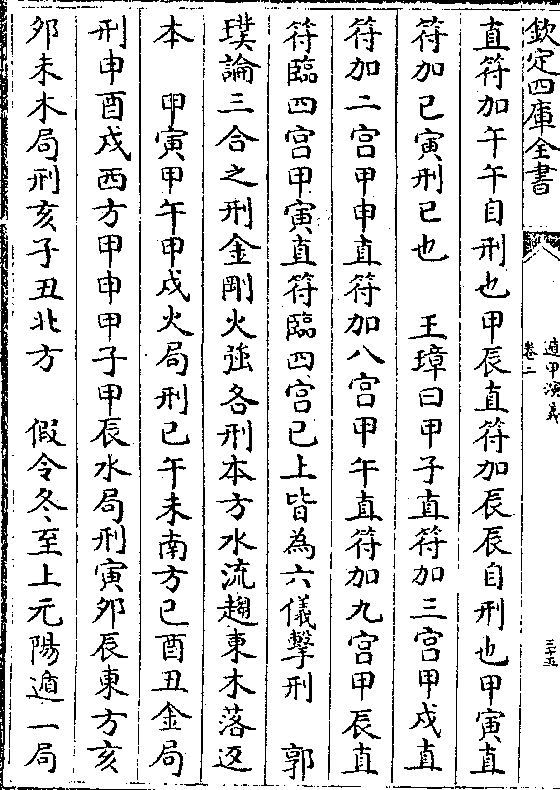 欽定四庫全書
遁甲演義
卷二
三十五
直符加午午自刑也甲辰直符加辰辰自刑也甲寅直
符加巳寅刑巳也　王璋曰甲子直符加三宫甲戌直
符加二宫甲申直符加八宫甲午直符加九宫甲辰直
符臨四宫甲寅直符臨四宫已上皆為六儀擊刑　郭
璞論三合之刑金剛火強各刑本方水流趨東木落返
本　甲寅甲午甲戌火局刑巳午未南方巳酉丑金局
刑申酉戌西方甲申甲子甲辰水局刑寅夘辰東方亥
夘未木局刑亥子丑北方　假令冬至上元陽遁一局